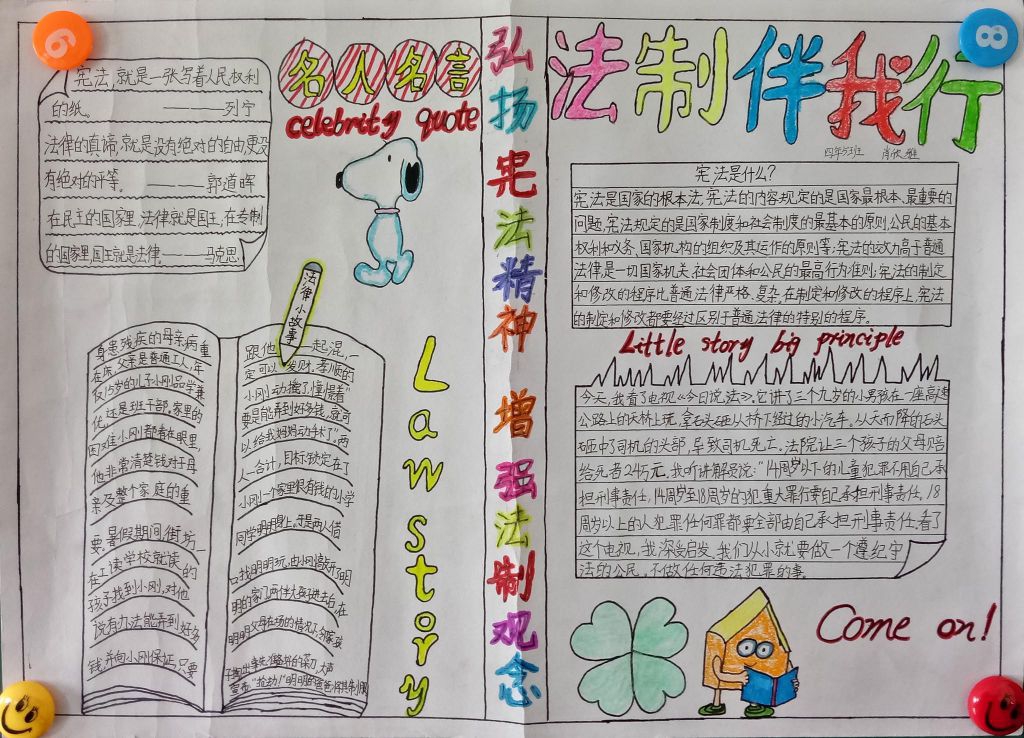 法制伴我行
四年5班 肖欣雅
弘扬宪法精神 增强法制观念
名人名言
celebrity quote
宪法,就是一张写着人民权利
的纸。 ————列宁
法律的真谛,就是没有绝对的自由,更没
有绝对的平等。 ———郭道晖
在民主的国家里,法律就是国王;在专制
的国家里,国王就是法律。———马克思
法律小故事
Law story
身患残疾的母亲病重
在床,父亲是普通工人,年
仅15岁的儿子小刚品学兼
优,还是班干部,家里的
困难小刚都看在眼里,
他非常清楚钱对于母
亲及整个家庭的重
要。暑假期间,街坊一
在工读学校就读的
孩子找到小刚,对他
说有办法能弄到好多
钱,并向小刚保证,只要
跟他一起混,一
定可以发财,孝顺的
小刚动摇了,懂得着"
要是能弄到好多钱,就可
以给我妈妈动手术了"两
人一合计,目标锁定在了
小刚一个家里很有钱的小学
同学明明身上。于是两人借
口找明明玩,由小刚搞开了明
明的家门,两伴大孩冲进去后,在
明明父母在场的情况下,
宣布"抢劫!"明明的爸爸
宪法是什么?
宪法是国家的根本法,宪法的内容规定的是国家最根本、最重要的
问题,宪法规定的是国家制度和社会制度的最基本的原则,公民的基本
权利和义务、国家机构的组织及其运作的原则等;宪法的效力高于普通
法律,是一切国家机关、社会团体和公民的最高行为准则;宪法的制定
和修改的程序比普通法律严格、复杂,在制定和修改的程序上,宪法
的制定和修改都要经过区别于普通法律的特别的程序。
Little story big principle
今天,我看了电视《今日说法》。它讲了三个九岁的小男孩在一座高速
公路上的天桥上玩,拿石头砸从桥下经过的小汽车。从天而降的石头
砸中司机的头部,导致司机死亡。法院让三个孩子的父母赔
给死者245元。我听讲解员说:"14周岁以下的儿童犯罪不用自己承
担刑事责任,14周岁到18周岁的犯重大罪行要自己承担刑事责任,18
周岁以上的人犯罪任何罪都要全部由自己承担刑事责任。看了
这个电视,我深受启发,我们从小就要做一个遵纪守
法的公民,不做任何违法犯罪的事。
Come on!